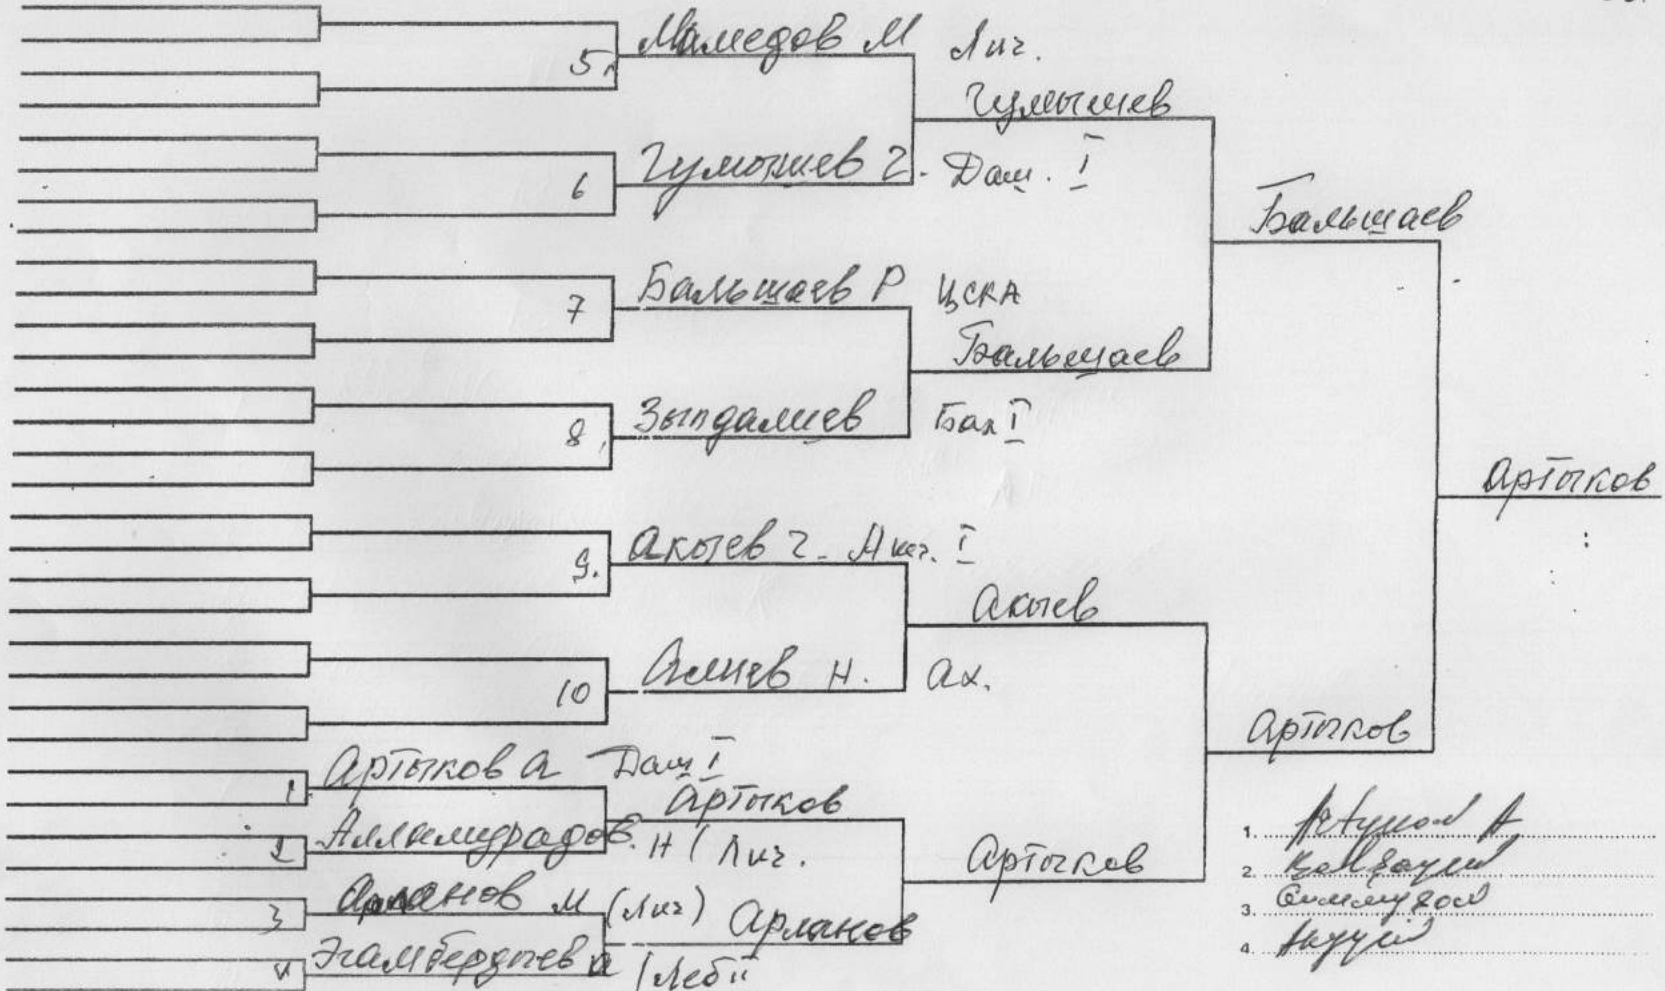 5. Мамедов М Лич.
Гумышев
6 Гумышев Г. Даш. I
Балышаев
7 Балышаев Р ЦСКА
Балышаев
8. Зындалиев Бал I
Артыков
9. Акыев Г. I
Акыев
10 Алиев Н. Ах.
Артыков
1. Артыков А Даш I
Артыков
2 Алламурадов. Н ( Лич.
Артыков
3 Арланов М (Лич)
Арланов
4 Эгамбердыев А (Леб II
1.
2
3.
4